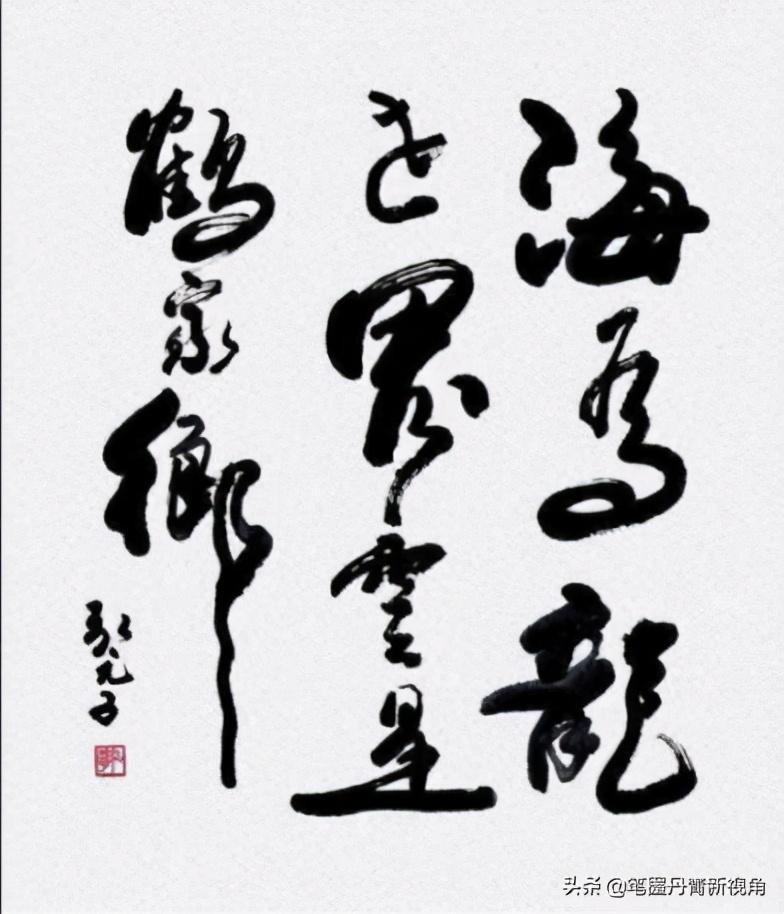 海為龍
世界雲是
鶴家鄉
头条 @笔墨丹青新视角